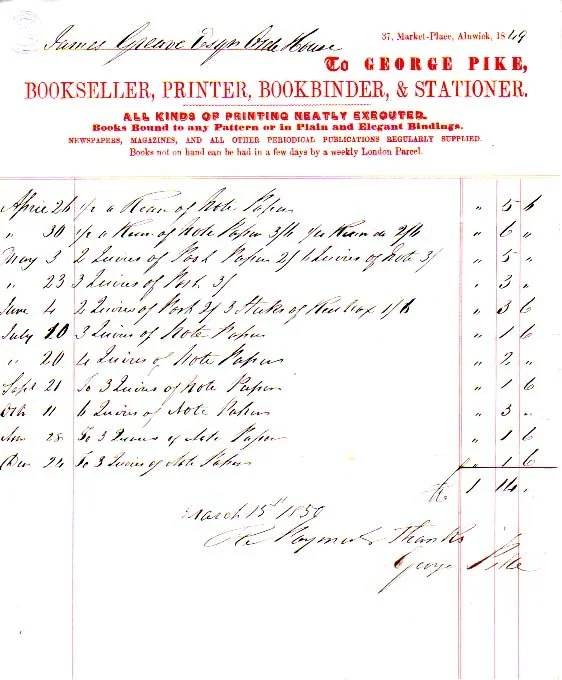 James Greave Esqr Orde House
37, Market-Place, Alnwick, 1849
To GEORGE PIKE,
BOOKSELLER, PRINTER, BOOKBINDER, & STATIONER.
ALL KINDS OF PRINTING NEATLY EXECUTED.
Books Bound to any Pattern or in Plain and Elegant Bindings.
NEWSPAPERS, MAGAZINES, AND ALL OTHER PERIODICAL PUBLICATIONS REGULARLY SUPPLIED.
Books not on hand can be had in a few days by a weekly London Parcel.
April 26 1/2 a Ream of Note Paper " 5 6
" 30 1/2 a Ream of Note Paper 3/6 1/2 Ream do 2/6 " 6 "
May 3 2 Quires of Post Paper 2/ 6 Quires of Note 3/ " 5 "
" 23 3 Quires of Post 3/ " 3 "
June 4 2 Quires of Post 2/ 3 Sticks of Wax 1/6 " 3 6
July 10 3 Quires of Note Paper " 1 6
" 20 4 Quires of Note Papers " 2 "
Sept 21 To 3 Quires of Note Paper " 1 6
Octr 11 6 Quires of Note Papers " 3 "
Nov 28 To 3 Quires of Note Paper " 1 6
Dec 24 To 3 Quires of Note Papers " 1 6
£ 1 14 "
March 15th 1850
Payment Thanks
George Pike